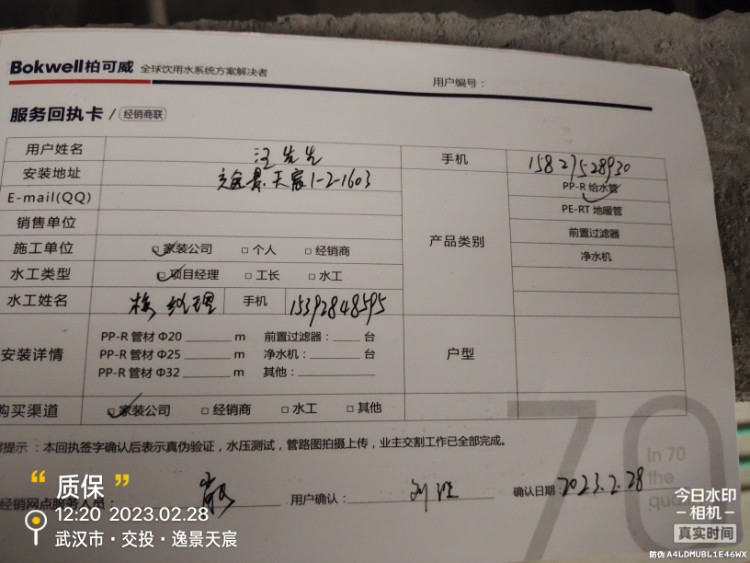 Bokwell柏可威 全球饮用水系统方案解决者
用户编号：
服务回执卡 / 经销商联
用户姓名 汪先生 手机 15827528930
安装地址 逸景.天宸1-2-1603 产品类别 PP-R 给水管
E-mail(QQ) PE-RT 地暖管
销售单位 前置过滤器
施工单位 家装公司 个人 经销商 净水机
水工类型 项目经理 工长 水工
水工姓名 经理 手机 15392848595
安装详情 PP-R 管材 Φ20 m 前置过滤器： 台 户型
PP-R 管材 Φ25 m 净水机： 台
PP-R 管材 Φ32 m 其他：
购买渠道 家装公司 经销商 水工 其他
提示：本回执签字确认后表示真伪验证，水压测试，管路图拍摄上传，业主交割工作已全部完成。
70
In 70
the
经销网点服务人员： 用户确认： 确认日期 2023.2.28
“质保”
12:20 2023.02.28
武汉市·交投·逸景天宸
今日水印
相机
真实时间
防伪 A4LDMUBL1E46WX